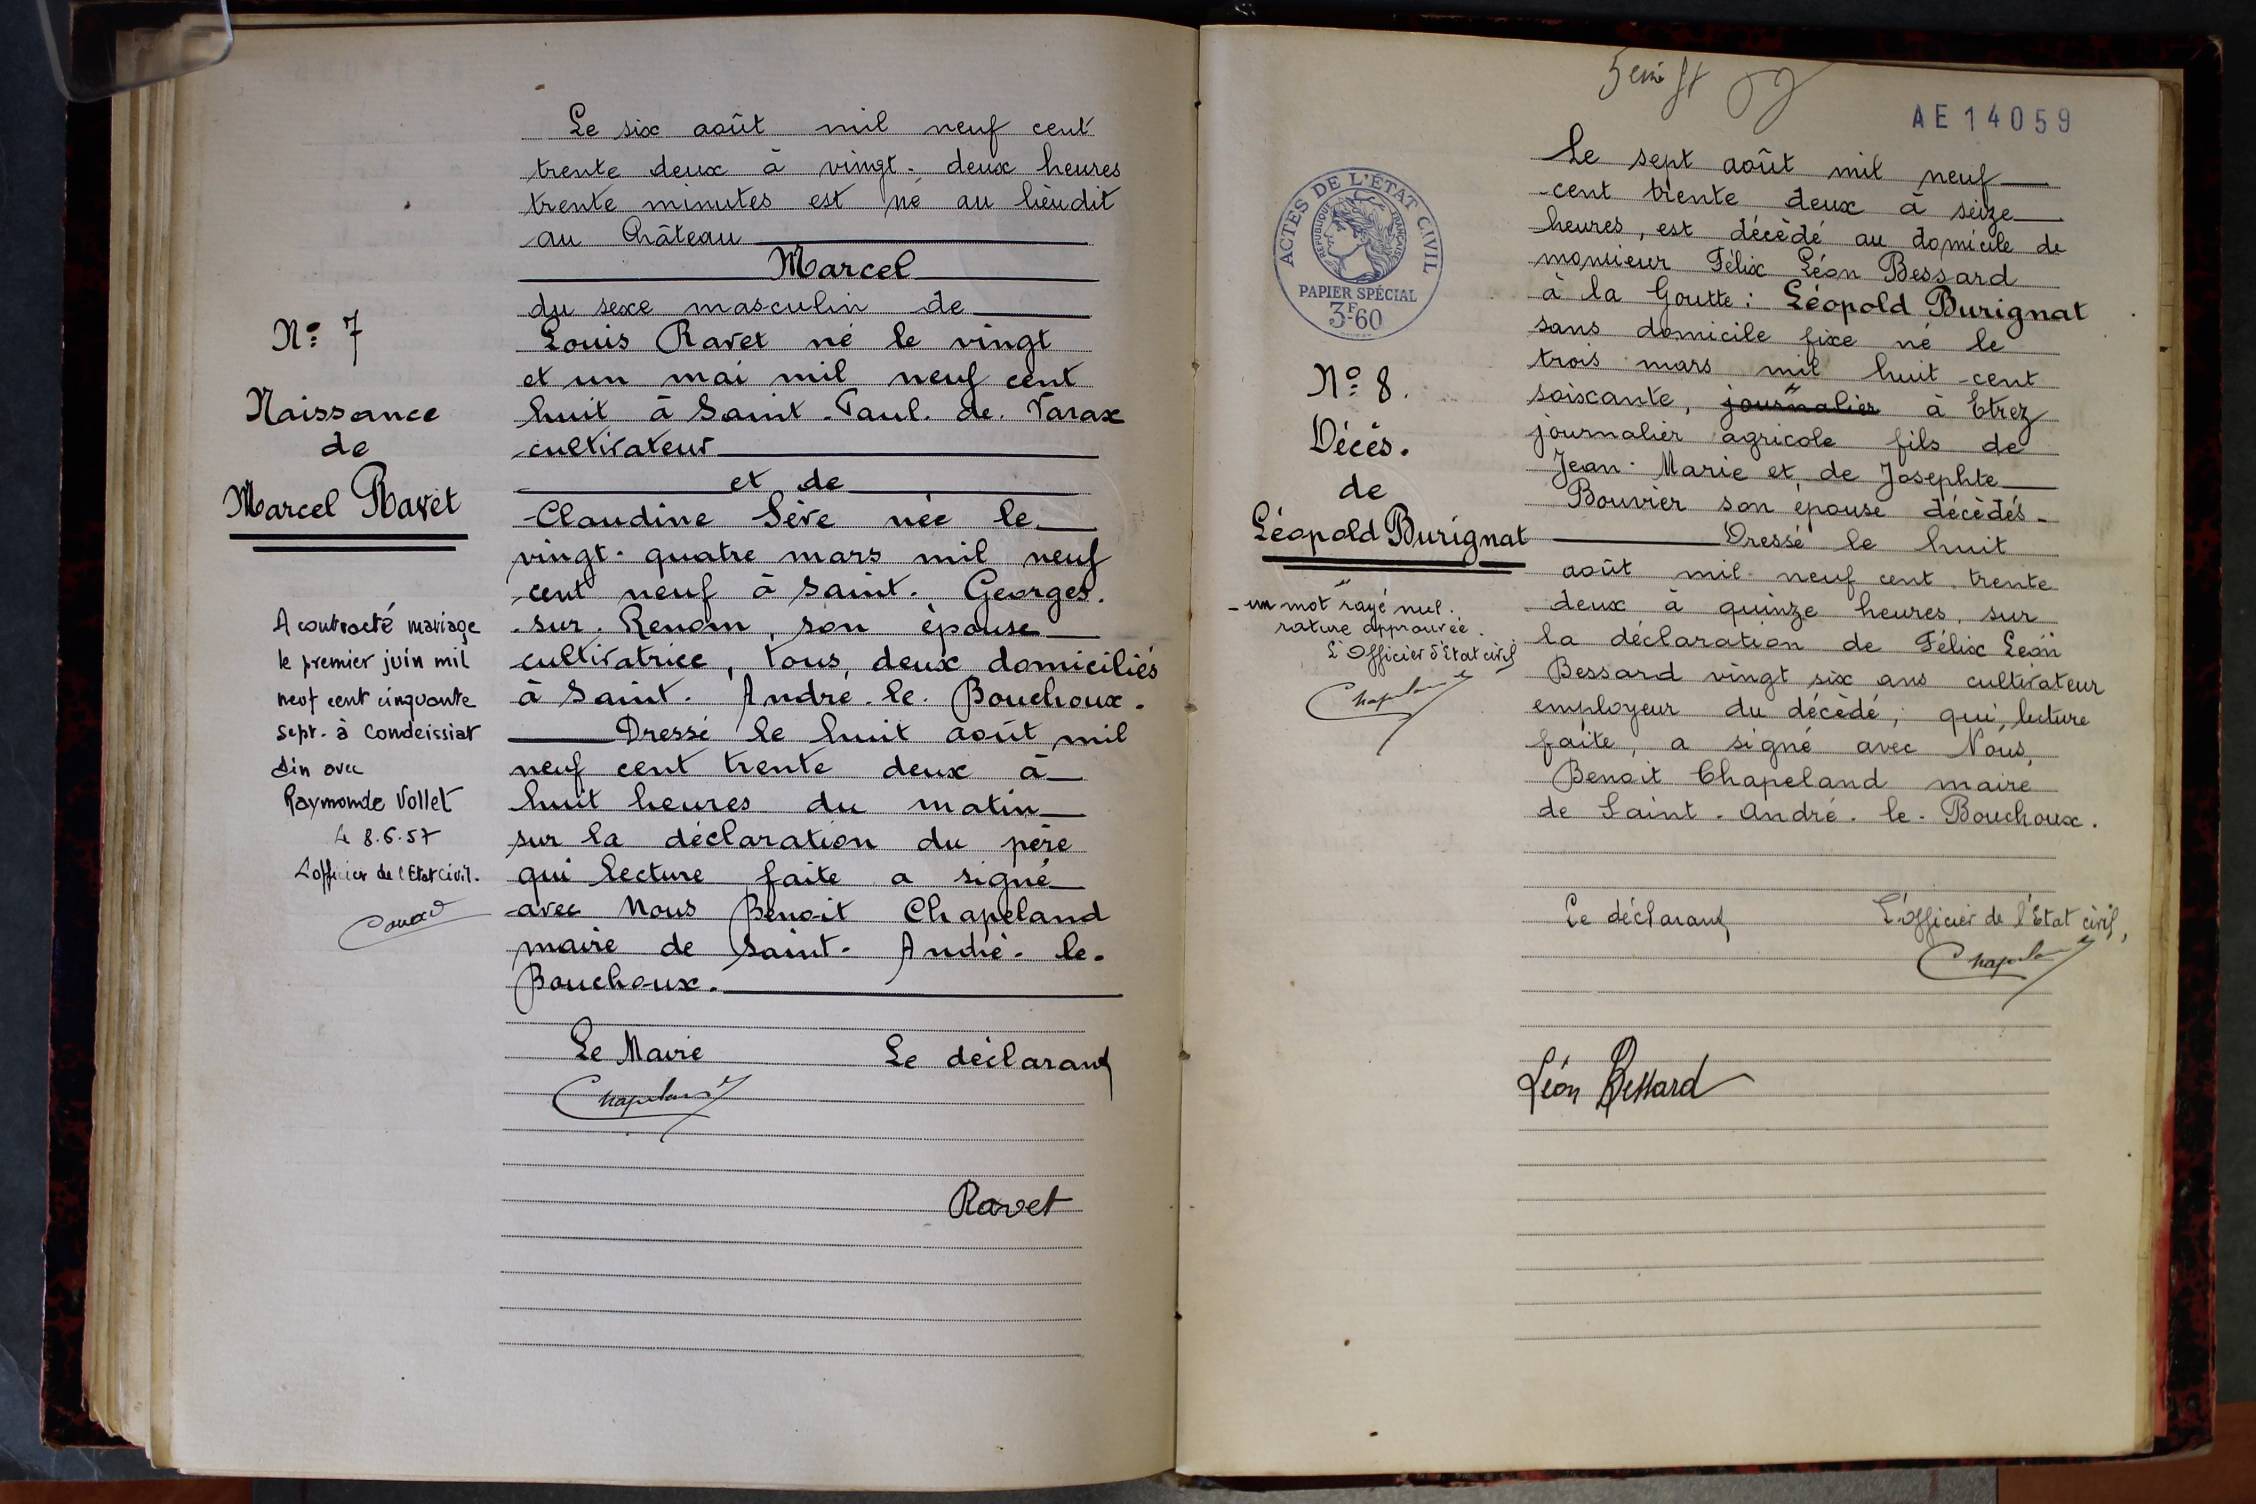 N° 7
Naissance
de
Marcel Ravet
A contracté mariage
le premier juin mil
neuf cent cinquante
sept. à Condeissiat
Ain avec
Raymonde Vollet
le 8.6.57
L'officier de l'Etat civil.
Le six août mil neuf cent
trente deux à vingt-deux heures
trente minutes est né au lieudit
au Château
Marcel
du sexe masculin de
Louis Ravet né le vingt
et un mai mil neuf cent
huit à Saint-Paul-de-Varax
cultivateur
et de
Claudine Sève née le
vingt-quatre mars mil neuf
cent neuf à Saint-Georges-
sur-Renom, son épouse
cultivatrice, tous deux domiciliés
à Saint-André-le-Bouchoux.
Dressé le huit août mil
neuf cent trente deux à
huit heures du matin
sur la déclaration du père
qui lecture faite a signé
avec Nous Benoit Chapeland
maire de Saint-André-le-
Bouchoux.
Le Maire Le déclarant
Chapeland
Ravet
AE 14059
ACTES DE L'ÉTAT CIVIL
RÉPUBLIQUE FRANÇAISE
PAPIER SPÉCIAL
3F60
N° 8.
Décès.
de
Léopold Burignat
- un mot rayé nul.
rature approuvée.
L'Officier d'Etat civil
Chapeland
Le sept août mil neuf
cent trente deux à seize
heures, est décèdé au domicile de
monsieur Félix Léon Bessard
à la Goutte: Léopold Burignat
sans domicile fixe né le
trois mars mil huit-cent
soixante, journalier à Etrez
journalier agricole fils de
Jean-Marie et de Josephte
Bouvier son épouse décèdés-
Dressé le huit
août mil neuf cent trente
deux à quinze heures, sur
la déclaration de Félix Léon
Bessard vingt six ans cultivateur
employeur du décèdé, qui, lecture
faite, a signé avec Nous,
Benoit Chapeland maire
de Saint-André-le-Bouchoux.
Le déclarant, L'officier de l'Etat civil,
Chapeland
Léon Bessard